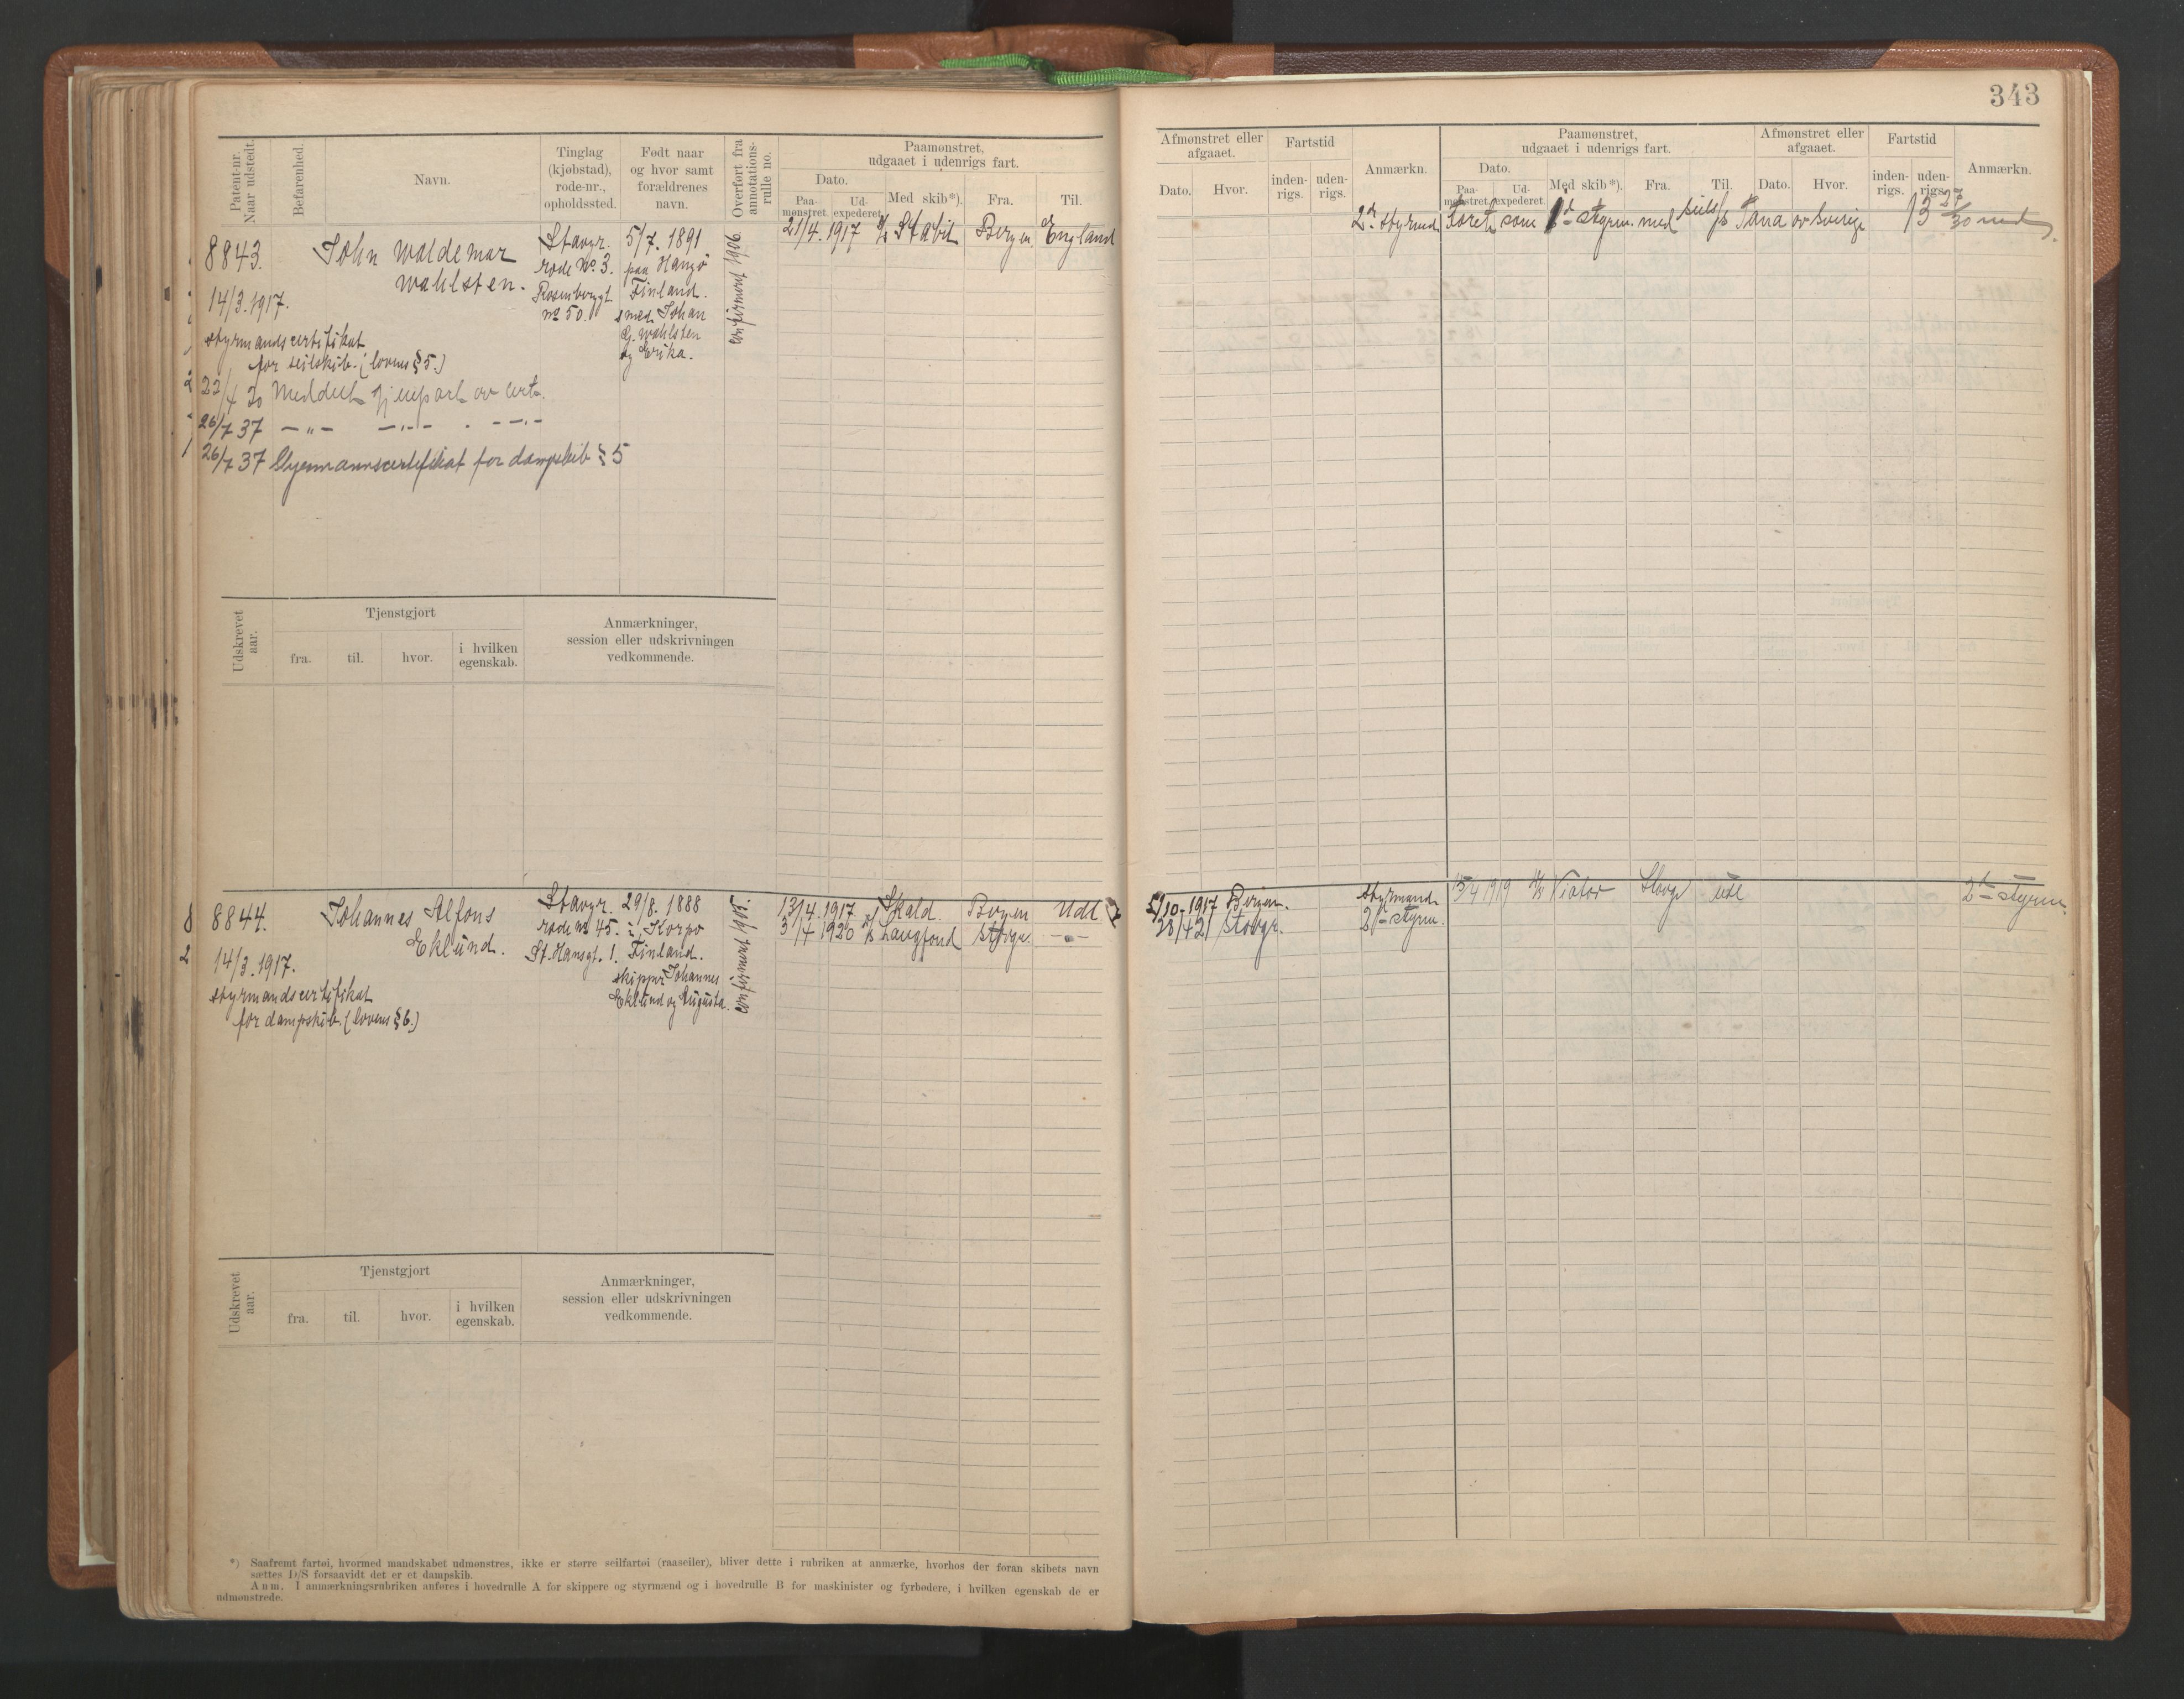 343
Patent-nr. Naar udstedt.
Befarenhed.
Navn.
Tinglag (kjøbstad), rode-nr., opholdssted.
Født naar og hvor samt forældrenes navn.
Overført fra annotations-rulle no.
Paamønstret, udgaaet i udenrigs fart.
Dato.
Paa-mønstret.
Ud-expederet.
Med skib*).
Fra.
Til.
Afmønstret eller afgaaet.
Dato.
Hvor.
Fartstid
inden-rigs.
uden-rigs.
Anmærkn.
Paamønstret, udgaaet i udenrigs fart.
Dato.
Paa-mønstret.
Ud-expederet.
Med skib*).
Fra.
Til.
Afmønstret eller afgaaet.
Dato.
Hvor.
Fartstid
inden-rigs.
uden-rigs.
Anmærkn.
8843.
John Waldemar
Wahlsten.
14/3.1917.
styrmandscertifikat
for seilskib. (lovens § 5.)
Stavgr.
rode No 3.
Rosenberggt.
No 50.
5/7. 1891
paa Hangö
Finland.
smed Johan
G. Wahlsten
og Erika.
confirmeret 1906.
21/4. 1917 Stabil Bergen England
2den styrmd faret som 1ste styrm. med seils/s Tana av Sverige 13 27/30 mnd.
22/4 20 Meddelt gjenpart av cert.
26/7 37 — " — — " — . — — " —
26/7 37 Styrmannscertifikat for dampskib § 5
Udskrevet aar.
Tjenstgjort
fra.
til.
hvor.
i hvilken egenskab.
Anmærkninger,
session eller udskrivningen
vedkommende.
8844.
Johannes Alfons
Eklund.
14/3.1917.
styrmandscertifikat
for dampskib. (lovens § 6.)
Stavgr.
rode No 45.
St. Hansgt. 1.
29/8. 1888
i Korpo
Finland.
skipper Johannes
Eklund og Augusta.
confirmeret 1905.
13/4. 1917 Skald. Bergen Udl
3/7 1920 Langfond Stavgr. — " —
/10-1917 Bergen. styrmand
28/4 21 Stavgr. 2den styrm.
15/4 1919 Viator Stavgr Udl 2den styrm.
Udskrevet aar.
Tjenstgjort
fra.
til.
hvor.
i hvilken egenskab.
Anmærkninger,
session eller udskrivningen
vedkommende.
*) Saafremt fartøi, hvormed mandskabet udmønstres, ikke er større seilfartøi (raaseiler), bliver dette i rubriken at anmærke, hvorhos der foran skibets navn
sættes D/S forsaavidt det er et dampskib.
Anm. I anmærkningsrubriken anføres i hovedrulle A for skippere og styrmænd og i hovedrulle B for maskinister og fyrbødere, i hvilken egenskab de er
udmønstrede.